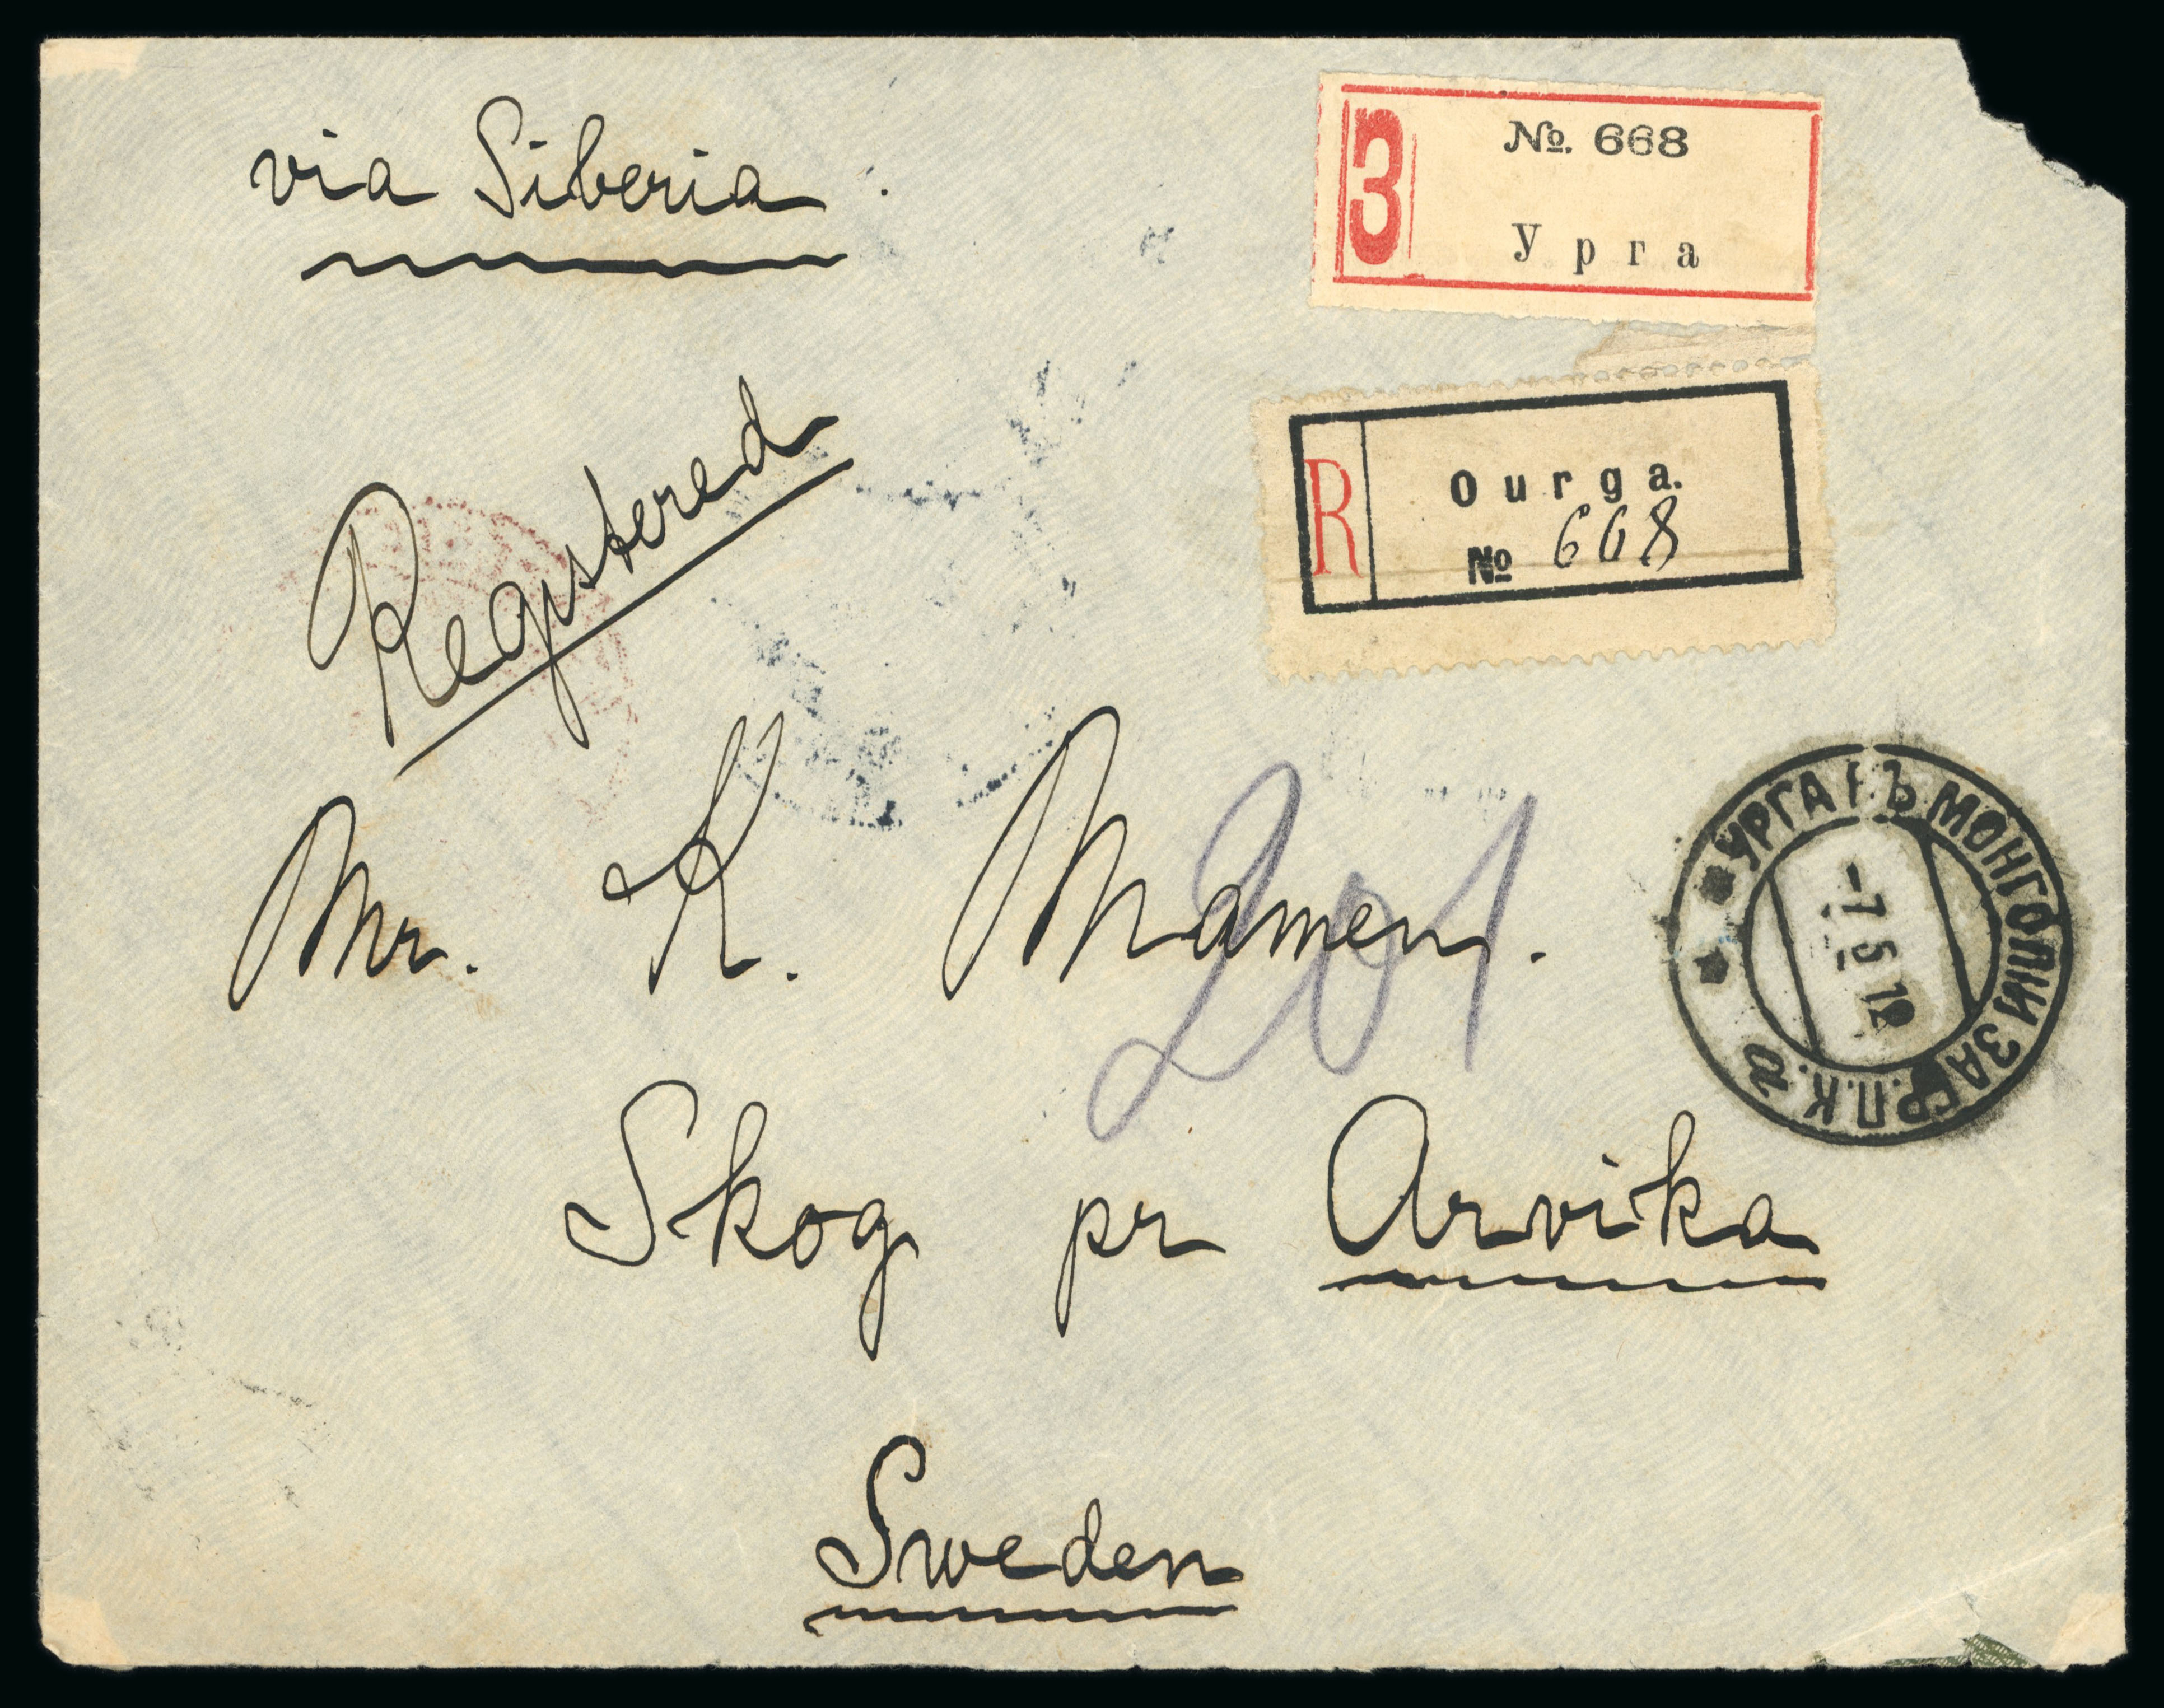 via Siberia
З
№. 668
Урга
Registered
R
Ourga.
№ 668
Mr. K. Mamen.
201
УРГА Г.Ъ МОНГОЛIИ ЗАГР.П.К. а
-7 5 12
Skog pr Arvika
Sweden